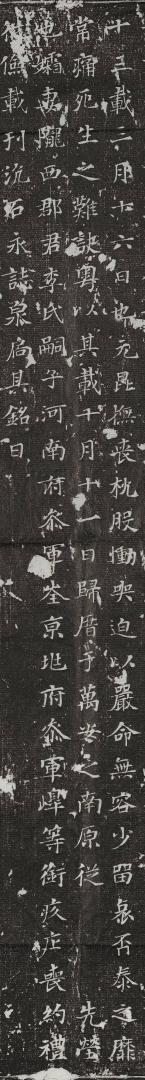 十三載三月十六日也元昆撫喪枕股慟哭迫以嚴命無容少留哀否泰之靡
常痛死生之難訣粵以其載十月十一日歸厝于萬安之南原從 先塋
也孀妻隴西郡君李氏嗣子河南府參軍崟京地府參軍嶂等銜疚茌喪約禮
儉載刊沉石永誌泉扃其銘曰